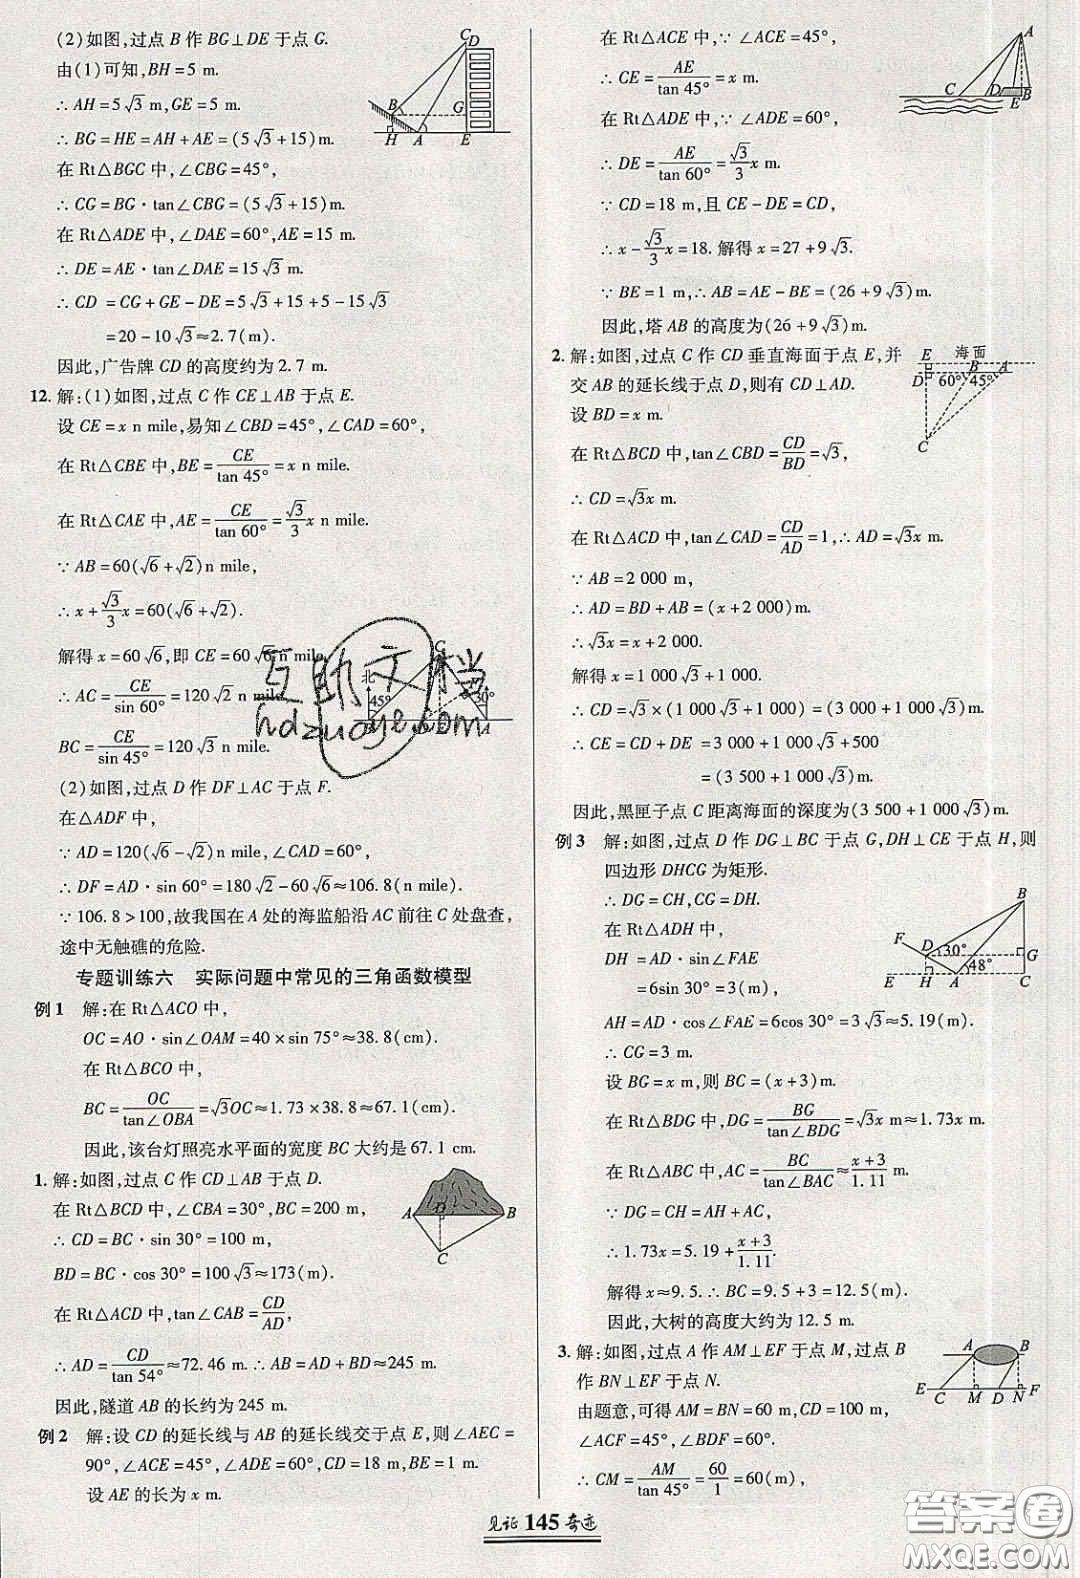 (2)如图,过点 B 作 BG⊥DE 于点 G.
由(1)可知,BH=5 m.
∴AH=5√3 m,GE=5 m.
∴BG=HE=AH+AE=(5√3+15)m.
在 Rt△BGC 中,∠CBG=45°,
∴CG=BG·tan∠CBG=(5√3+15)m.
在 Rt△ADE 中,∠DAE=60°,AE=15 m.
∴DE=AE·tan∠DAE=15√3 m.
∴CD=CG+GE-DE=5√3+15+5-15√3
=20-10√3≈2.7(m).
因此,广告牌 CD 的高度约为 2.7 m.
C D B G H A E
12.解:(1)如图,过点 C 作 CE⊥AB 于点 E.
设 CE=x n mile,易知∠CBD=45°,∠CAD=60°,
在 Rt△CBE 中,BE=CE/tan 45°=x n mile.
在 Rt△CAE 中,AE=CE/tan 60°=√3/3 x n mile.
∵AB=60(√6+√2)n mile,
∴x+√3/3 x=60(√6+√2).
解得 x=60√6,即 CE=60√6 n mile.
∴AC=CE/sin 60°=120√2 n mile,
BC=CE/sin 45°=120√3 n mile.
北 45° C 30°
互助文档
hdzuoye.com
(2)如图,过点 D 作 DF⊥AC 于点 F.
在△ADF 中,
∵AD=120(√6-√2)n mile,∠CAD=60°,
∴DF=AD·sin 60°=180√2-60√6≈106.8(n mile).
∵106.8>100,故我国在 A 处的海监船沿 AC 前往 C 处盘查,
途中无触礁的危险.
专题训练六 实际问题中常见的三角函数模型
例 1 解:在 Rt△ACO 中,
OC=AO·sin∠OAM=40×sin 75°≈38.8(cm).
在 Rt△BCO 中,
BC=OC/tan∠OBA=√3OC≈1.73×38.8≈67.1(cm).
因此,该台灯照亮水平面的宽度 BC 大约是 67.1 cm.
1.解:如图,过点 C 作 CD⊥AB 于点 D.
在 Rt△BCD 中,∠CBA=30°,BC=200 m,
∴CD=BC·sin 30°=100 m,
BD=BC·cos 30°=100√3≈173(m).
在 Rt△ACD 中,tan∠CAB=CD/AD,
∴AD=CD/tan 54°≈72.46 m.∴AB=AD+BD≈245 m.
因此,隧道 AB 的长约为 245 m.
A D B C
例 2 解:设 CD 的延长线与 AB 的延长线交于点 E,则∠AEC=
90°,∠ACE=45°,∠ADE=60°,CD=18 m,BE=1 m.
设 AE 的长为 x m.
在 Rt△ACE 中,∵∠ACE=45°,
∴CE=AE/tan 45°=x m.
在 Rt△ADE 中,∵∠ADE=60°,
∴DE=AE/tan 60°=√3/3 x m.
∵CD=18 m,且 CE-DE=CD,
∴x-√3/3 x=18.解得 x=27+9√3.
∵BE=1 m,∴AB=AE-BE=(26+9√3)m.
因此,塔 AB 的高度为(26+9√3)m.
A C D B E
2.解:如图,过点 C 作 CD 垂直海面于点 E,并
交 AB 的延长线于点 D,则有 CD⊥AD.
设 BD=x m.
在 Rt△BCD 中,tan∠CBD=CD/BD=√3,
∴CD=√3x m.
在 Rt△ACD 中,tan∠CAD=CD/AD=1,∴AD=√3x m.
∵AB=2 000 m,
∴AD=BD+AB=(x+2 000)m.
∴√3x=x+2 000.
解得 x=1 000√3+1 000.
∴CD=√3×(1 000√3+1 000)=(3 000+1 000√3)m.
∴CE=CD+DE=3 000+1 000√3+500
=(3 500+1 000√3)m.
因此,黑匣子点 C 距离海面的深度为(3 500+1 000√3)m.
E 海面 B A D 60° 45° C
例 3 解:如图,过点 D 作 DG⊥BC 于点 G,DH⊥CE 于点 H,则
四边形 DHCG 为矩形.
∴DG=CH,CG=DH.
在 Rt△ADH 中,
DH=AD·sin∠FAE
=6sin 30°=3(m),
AH=AD·cos∠FAE=6cos 30°=3√3≈5.19(m).
∴CG=3 m.
设 BG=x m,则 BC=(x+3)m.
在 Rt△BDG 中,DG=BG/tan∠BDG=√3x m≈1.73x m.
在 Rt△ABC 中,AC=BC/tan∠BAC≈(x+3)/1.11 m.
∵DG=CH=AH+AC,
∴1.73x=5.19+(x+3)/1.11.
解得 x≈9.5.∴BC=9.5+3=12.5(m).
因此,大树的高度大约为 12.5 m.
B F D 30° G 48° E H A C
3.解:如图,过点 A 作 AM⊥EF 于点 M,过点 B
作 BN⊥EF 于点 N.
由题意,可得 AM=BN=60 m,CD=100 m,
∠ACF=45°,∠BDF=60°.
∴CM=AM/tan 45°=60/1=60(m),
A B E C M D N F
见证 145 奇迹
答案圈
MXQE.COM